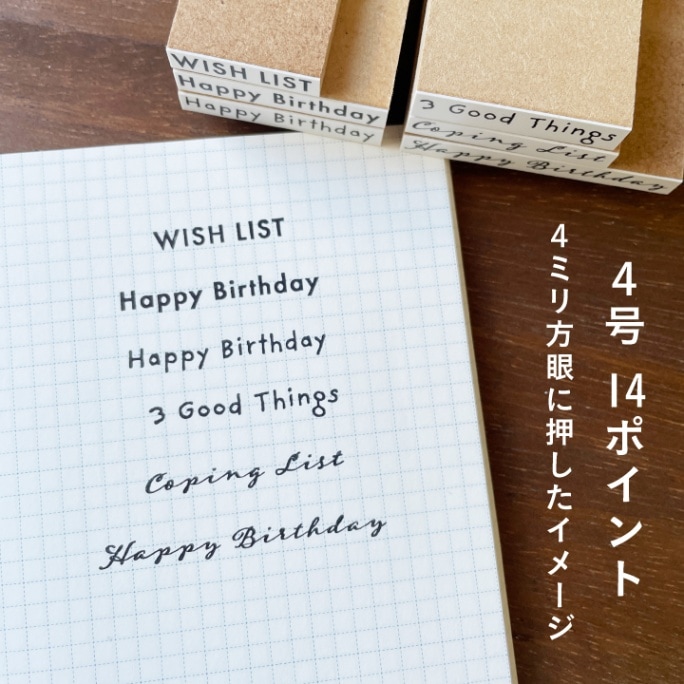 WISH LIST
Happy Birthday
Happy Birthday
3 Good Things
Coping List
Happy Birthday
WISH LIST
Happy Birthday
Happy Birthday
3 Good Things
Coping List
Happy Birthday
4号 14ポイント
4ミリ方眼に押したイメージ